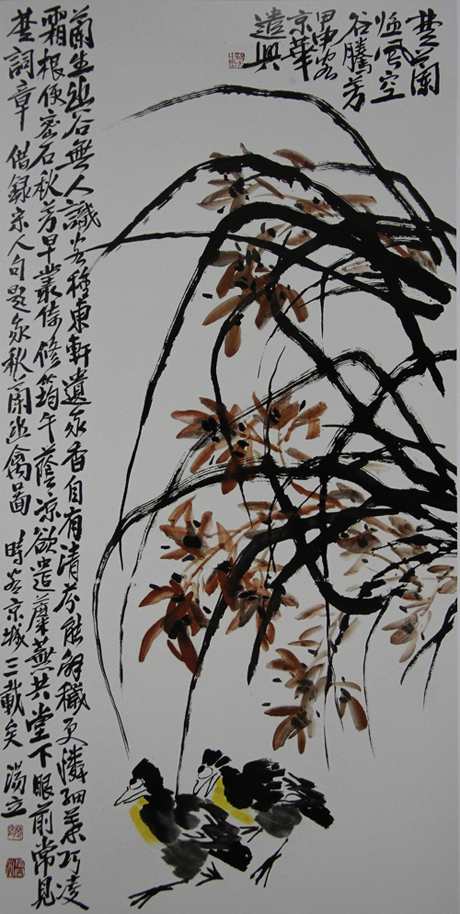 楚蘭
風空
谷騰芳
甲申客
京華
遣興
蘭生幽谷無人識客種東軒遺我香自有清芬能解穢更憐細葉巧凌
霜根便密石秋芳早叢倚修筠午蔭涼欲遣蘼蕪共堂下眼前常見
楚詞章 借錄宋人句題我秋蘭幽禽圖 時客京城三載矣 湯立